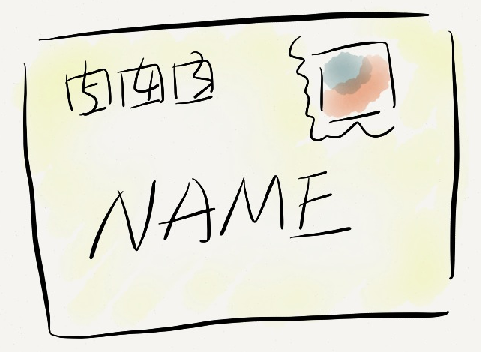 543
NAME